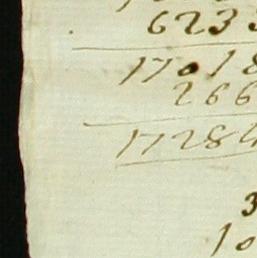 623
17018
266
17284
3
10